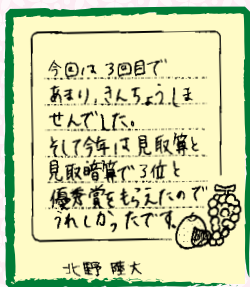 今回は3回目で
あまり,きんちょうしま
せんでした。
そして今年は見取算と
見取暗算で3位と
優秀賞をもらえたので
うれしかったです。
北野 陸大